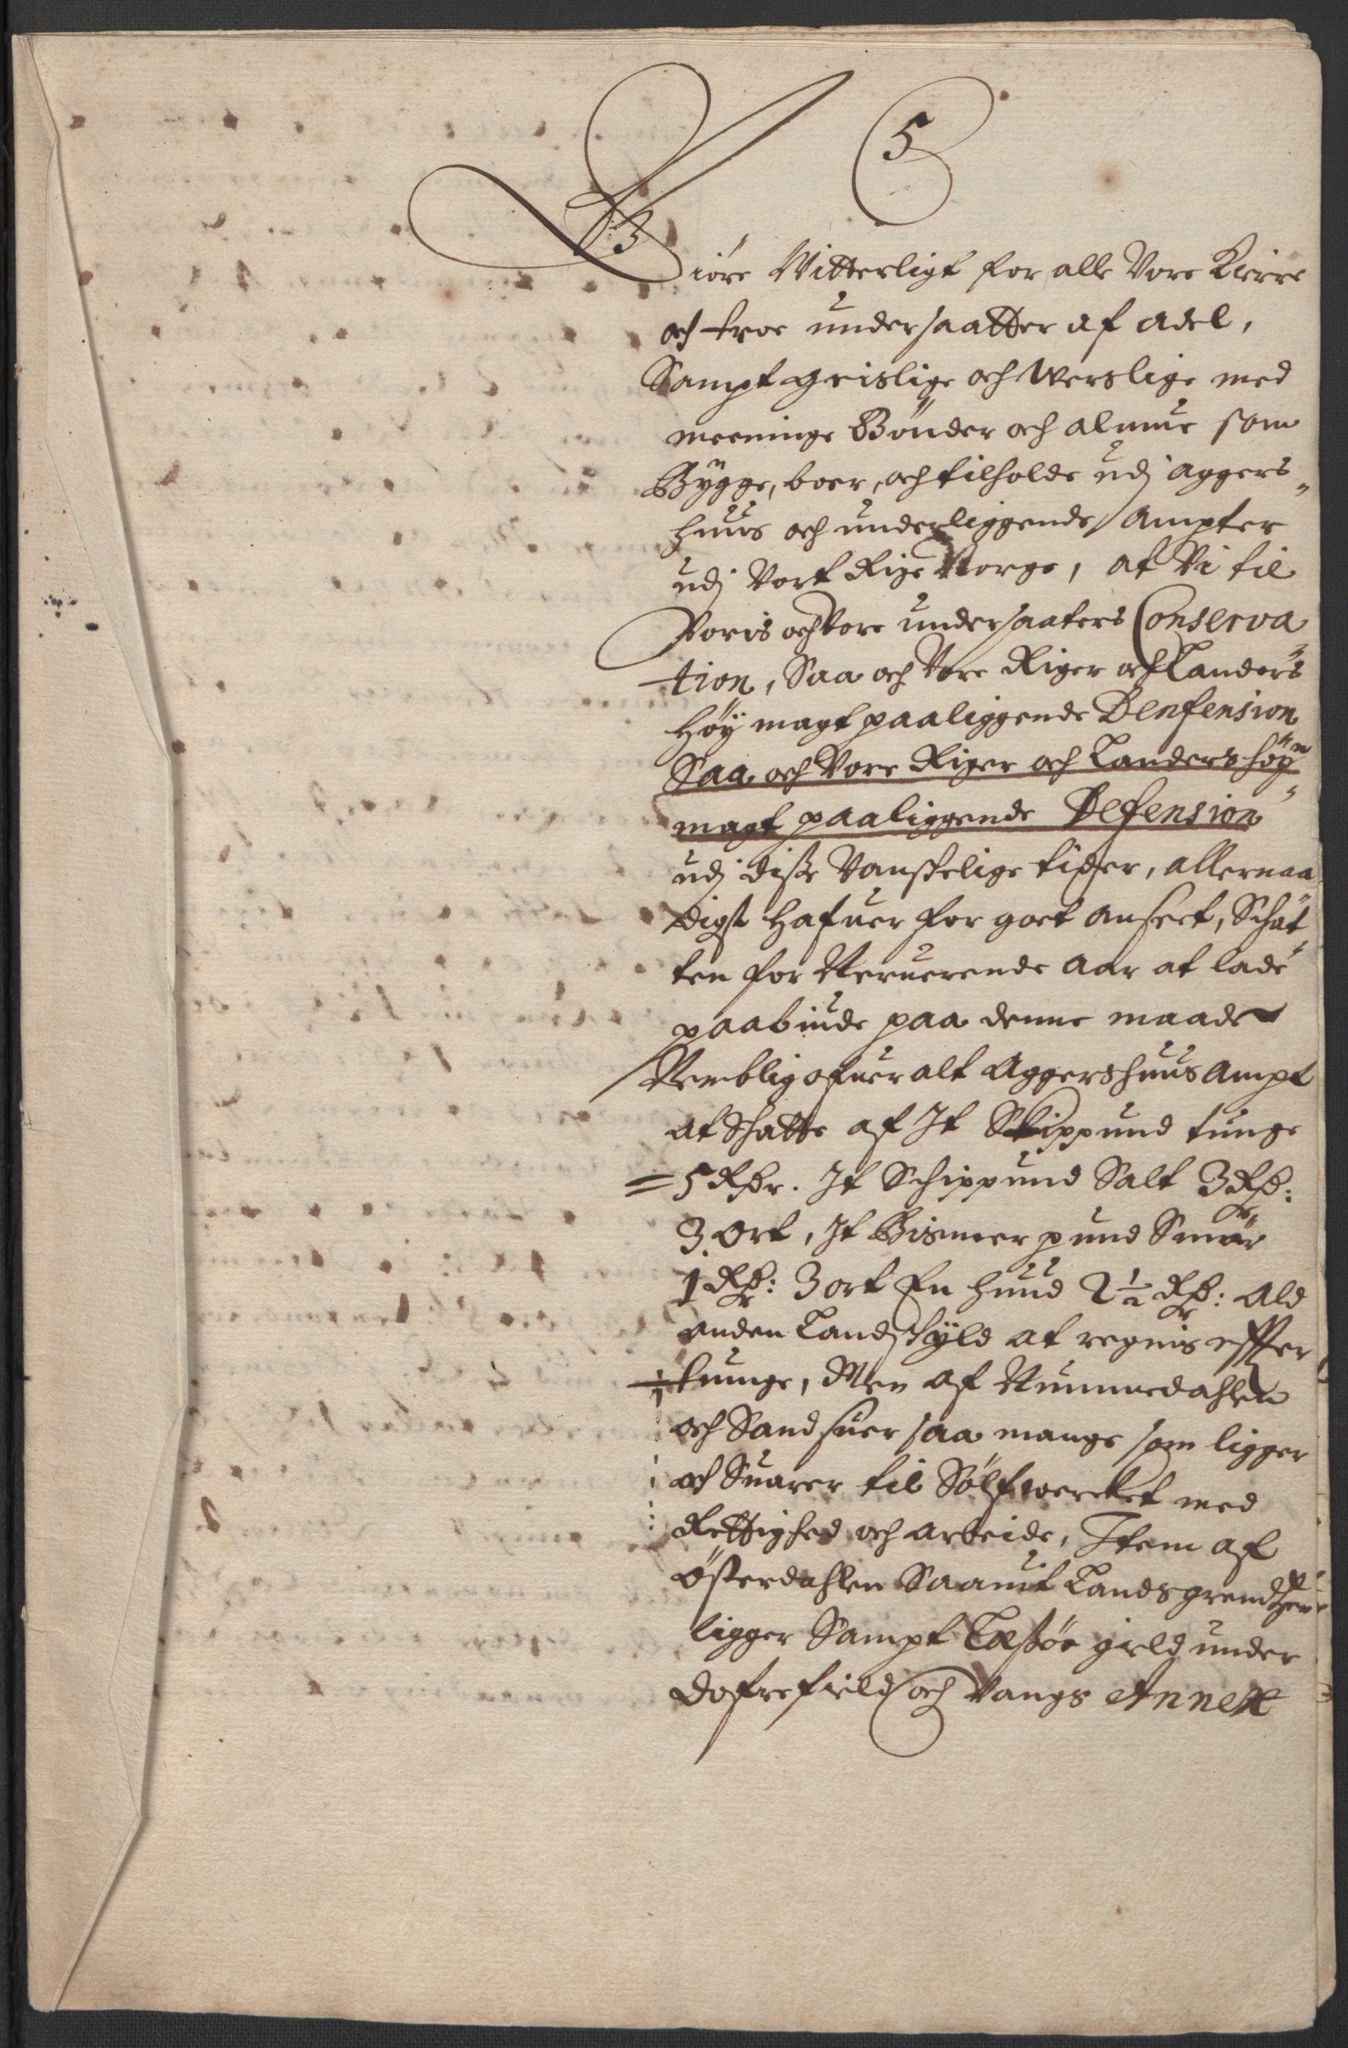 5
Giöre Witterligt for alle Vore Kiere
och troe undersaatter af adel,
Sampt geislige och Werslige med
meeninge Bønder och almue som
Bygge, boer, och tilholde udj Aggers-
huus och underliggende Ampter
udj Vort Rige Norge, at Vi til
Voris och Vore undersaaters Conserva
tion, Saa och Vore Riger och Landers
Høy magt paaliggende Denfension
Saa och Vore Riger och Landers høy
magt paaliggende Defension
udj disse Vanskelige tider, allernaa
digst hafuer for goet anseet, Schat
ten for Neruerende Aar at lade
paabiude paa denne maade
Nemblig ofuer alt Aggershuus Ampt
at Schatte af It Skippund tunge
5 Rdr. It Schippund Salt 3 Rdr:
3 Ort, It Bismer pund Smør
1 Rdr: 3 ort En hud 2 1/2 Rdr: Ald
anden Landskyld at regnis effter
tunge, Men af Nummedahlen
och Sandsuer saa mange som ligger
och Suarer til Sølfwercket med
Rettighed och arbeide, Item af
Østerdahlen Saauit Landsgrendtzen
ligger Sampt Lessøe gield under
Dofrefield och Vangs Annex